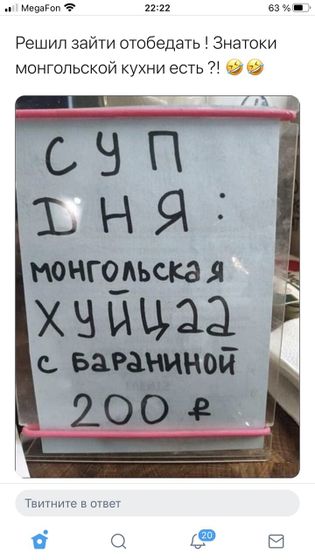 MegaFon
22:22
63 %
Решил зайти отобедать ! Знатоки
монгольской кухни есть ?! 🤣🤣
СУП
ДНЯ:
монгольская
хуйцаа
с бараниной
200 ₽
Твитните в ответ
20